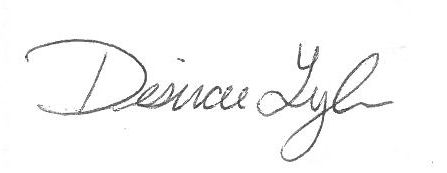 Desirae Lyle